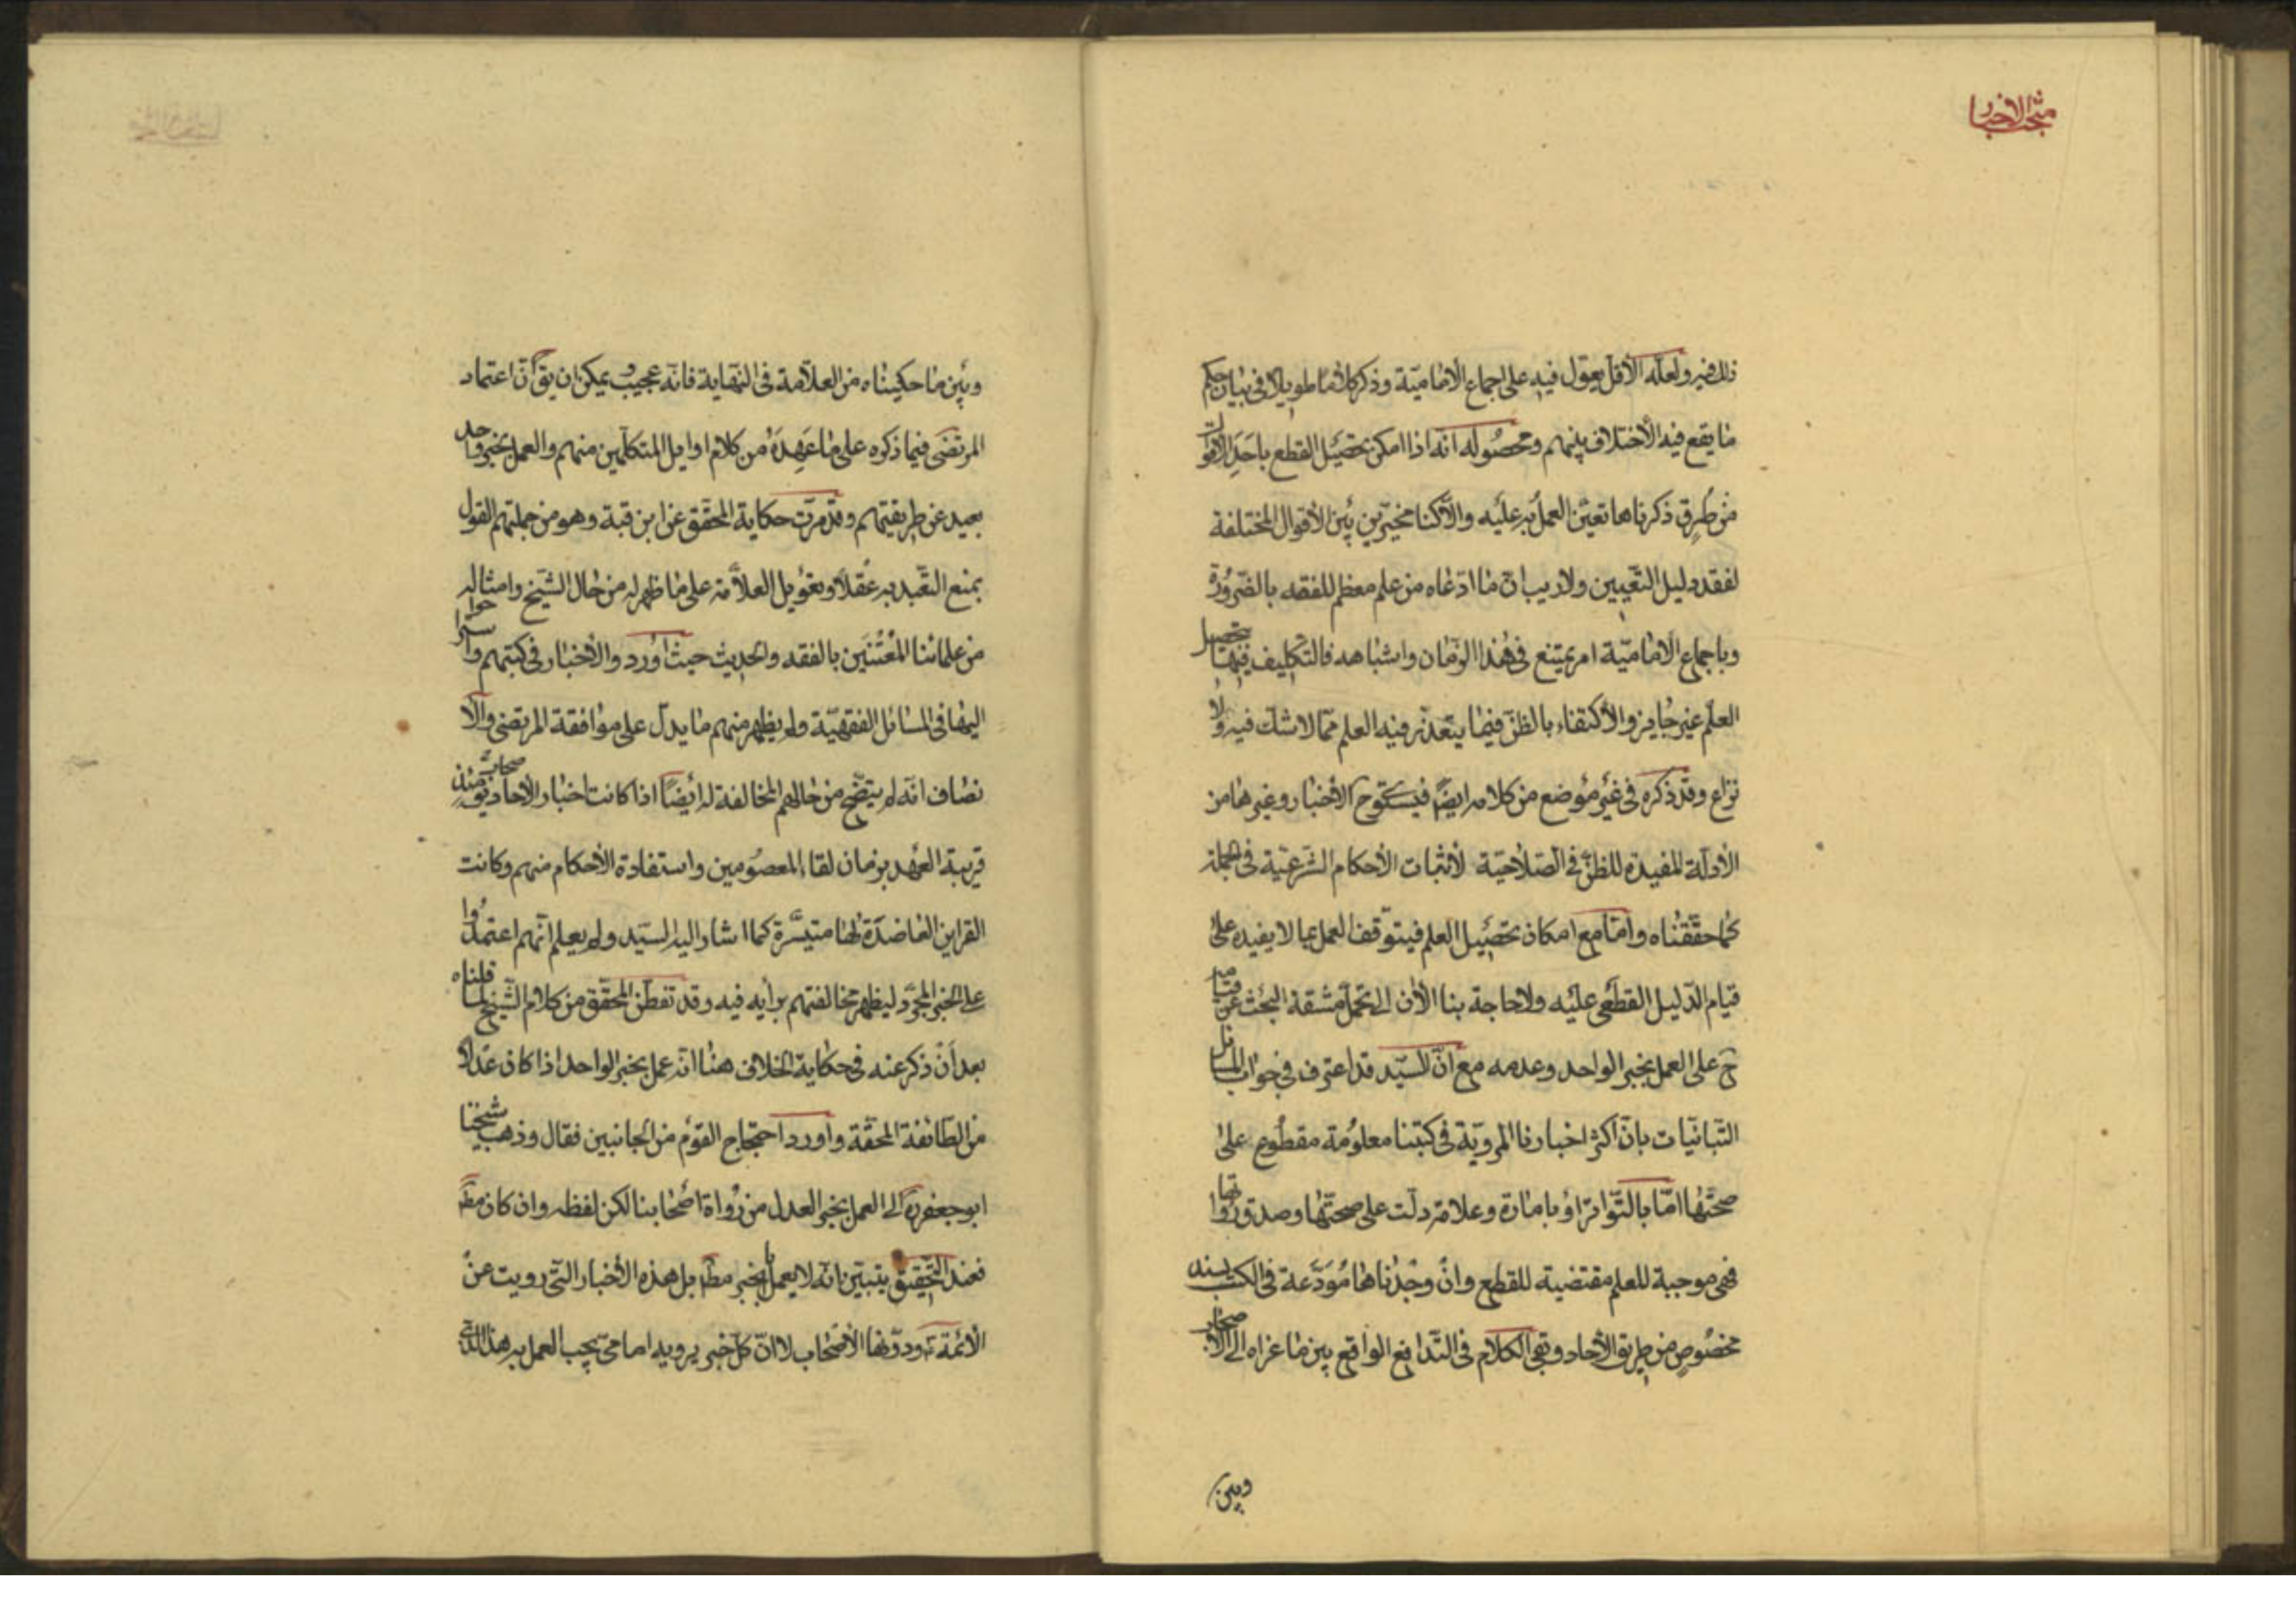 منتخب الاخبار
ذلك فيه ولعلّه الأقل يعوّل فيه على اجماع الأماميّة وذكر كلاما طويلا في بيان حكم
ما يقع فيه الأختلاف بينهم ومحصُوله انّه اذا امكن تحصيل القطع باحَدِ الأقوال
من طُرق ذكرناها تعيّن العمل به عليه والّا كنا مخيّرين بين الأقوال المختلفة
لفقد دليل التّعيين ولا ريب انّ ما ادّعاه من علم معظم للفقه بالضّرُورَة
وباجماع الأماميّة امر يمتنع في هذا الزّمان واشباهه فالتكليف فيها بتحصيل
العلم غير جايز والأكتفاء بالظنّ فيما يتعذّر فيه العلم ممّا لا شكّ فيه ولا
نزاع وقد ذكره في غير مؤضع من كلامه ايضًا فيستوى ح الأخبار وغيرها من
الأدلّة المفيدة للظنّ في الصّلاحيّة لأثبات الأحكام الشّرعيّة في الجملة
كما حقّقناه وامّا مع امكان تحصيل العلم فيتوقّف العمل بما لا يفيده على
قيام الدّليل القطعى عليه ولا حاجة بنا الأن الى تحمّل مشقة البحث عن قيامه
ح على العمل بخبر الواحد وعدمه مع انّ السّيّد قد اعترف في جواب المسائل
التّبانيّات بانّ اكثر اخبارنا المرويّة في كتبنا معلُومة مقطُوع على
صحّتها امّا بالتّواتر اؤ بامارة وعلامة دلّت على صحّتها وصدق رُواتها
فهى موجبة للعلم مقتضية للقطع وانْ وجَدْناها مُودَعة في الكتب بسند
مخصُوصٍ من طريق الأحاد وبقى الكلام في التّدافع الواقع بين ما عزاه الى الأصحاب
وبين
وبين ما حكيناه من العلّامة في النّهاية فانّه عجيب ويمكن ان يقَ انّ اعتماد
المرتضى فيما ذكره على ما عَهِدَهُ من كلام اوايل المتكلّمين منهم والعمل بخبر واحد
بعيد عن طريقتهم وقد مرّت حكاية المحقّق عن ابن قبة وهو من جملتهم القول
بمنع التعّبد به عقلًا وتعويل العلاّمة على ما ظهر له من حال الشّيخ وامثاله
من علمائنا المُعْتَنَين بالفقه والحديث حيث اوردوا الأخبار في كتبهم واستراحوا
اليها في المسائل الفقهيّة ولم يظهر منهم ما يدلّ على موافقة المرتضى والا
نصاف انّه لم يتضّح من حالهم المخالفة له أيضًا اذا كانت اخبار الأصحاب يومئذ
قريبة العهد بزمان لقاء المعصُومين واستفادة الأحكام منهم وكانت
القراين العاضدَة لها متيسَّرة كما اشار اليه السيّد ولم يعلم انّهم اعتمدُوا
على الخبر المجرَّد ليظهر مخالفتهم برأيه فيه وقد تفطّن المحقّق من كلام الشّيخ لما قلناه
بعد أنْ ذكر عنه في حكاية الخلاف هنا انّه عمل بخبر الواحد اذا كان عَدلًا
من الطّائفة المحقّة وأورد احتجاج القوم من الجانبين فقال وذهب شيخنا
ابو جعفر ره الى العمل بخبر العدل من رُواة أصْحابنا لكن لفظه وان كان مط
فعند التّحقيق يتبيّن انّه لا يعمل بالخبر مط بل هذه الأخبار التّى رويت عنْ
الأئمّة ع ودوّنها الأصْحاب لا انّ كلّ خبر يرويه امامىّ يجب العمل به هذا الذى